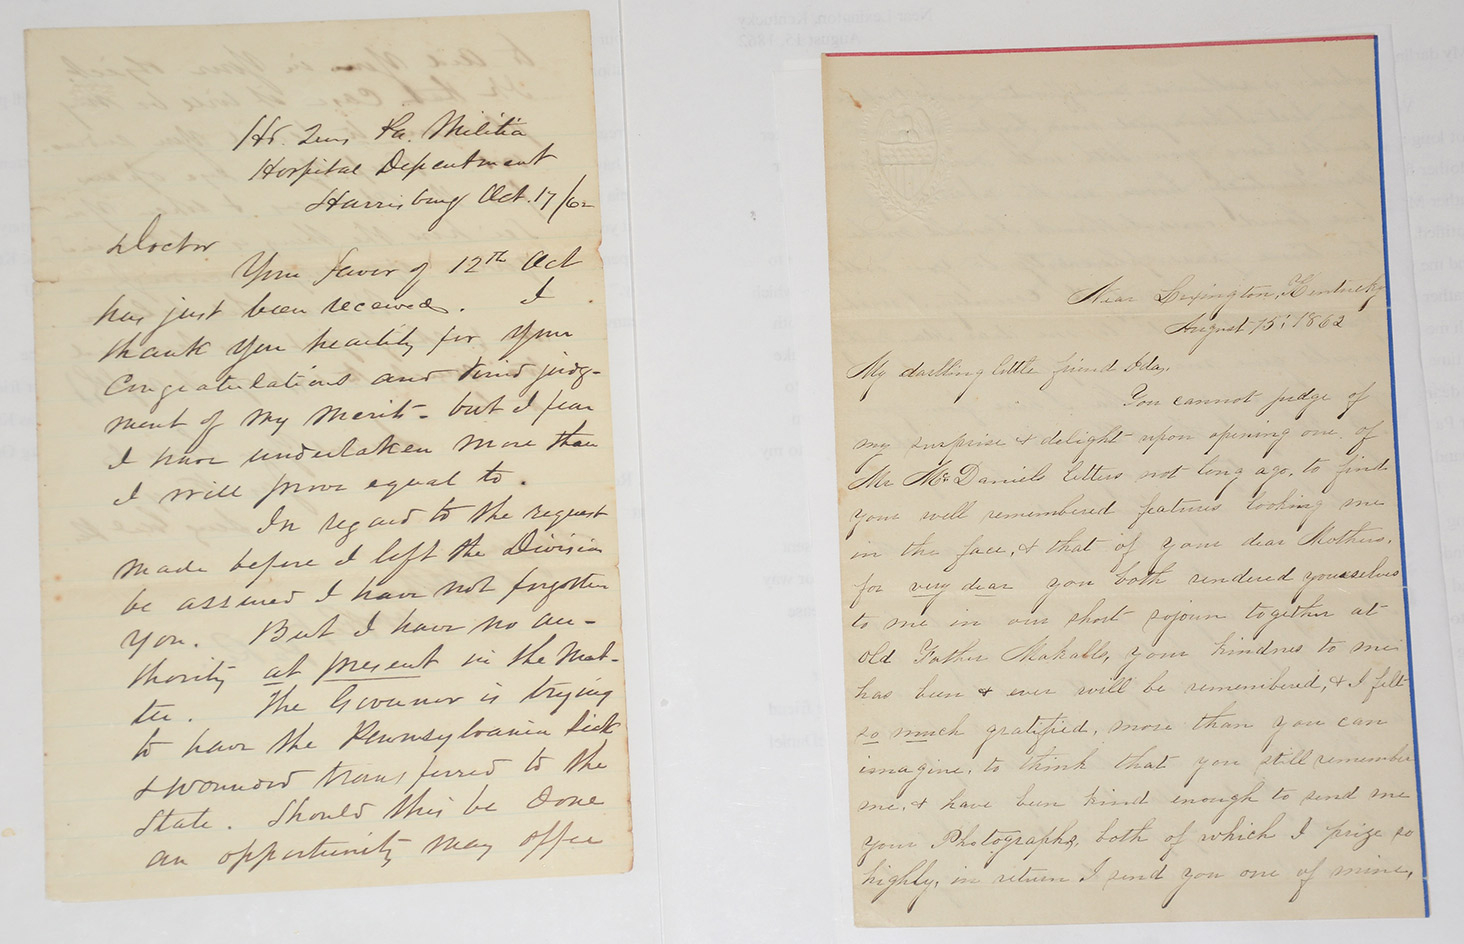 Hd. Qrs. Pa. Militia
Hospital Department
Harrisburg Oct. 17/62
Doctor
Your favor of 12th Oct
has just been received. I
thank you heartily for your
Congratulations and kind judg-
ment of my merit - but I fear
I have undertaken more than
I will prove equal to.
In regard to the request
made before I left the Division
be assured I have not forgotten
you. But I have no au-
thority at present in the mat-
ter. The Governor is trying
to have the Pennsylvania Sick
& wounded transferred to the
State. Should this be done
an opportunity may offer
Near Lexington, Kentucky
August 15, 1862
My darling little friend Ida,
You cannot judge of
my surprise & delight upon opening one of
Mr McDaniels letters not long ago, to find
your well remembered features looking me
in the face, & that of your dear Mothers,
for very dear you both rendered yourselves
to me in our short sojourn together at
old Father Makalls, your kindness to me
has been & ever will be remembered, & I felt
so much gratified, more than you can
imagine, to think that you still remember
me, & have been kind enough to send me
your Photographs, both of which I prize so
highly, in return I send you one of mine,